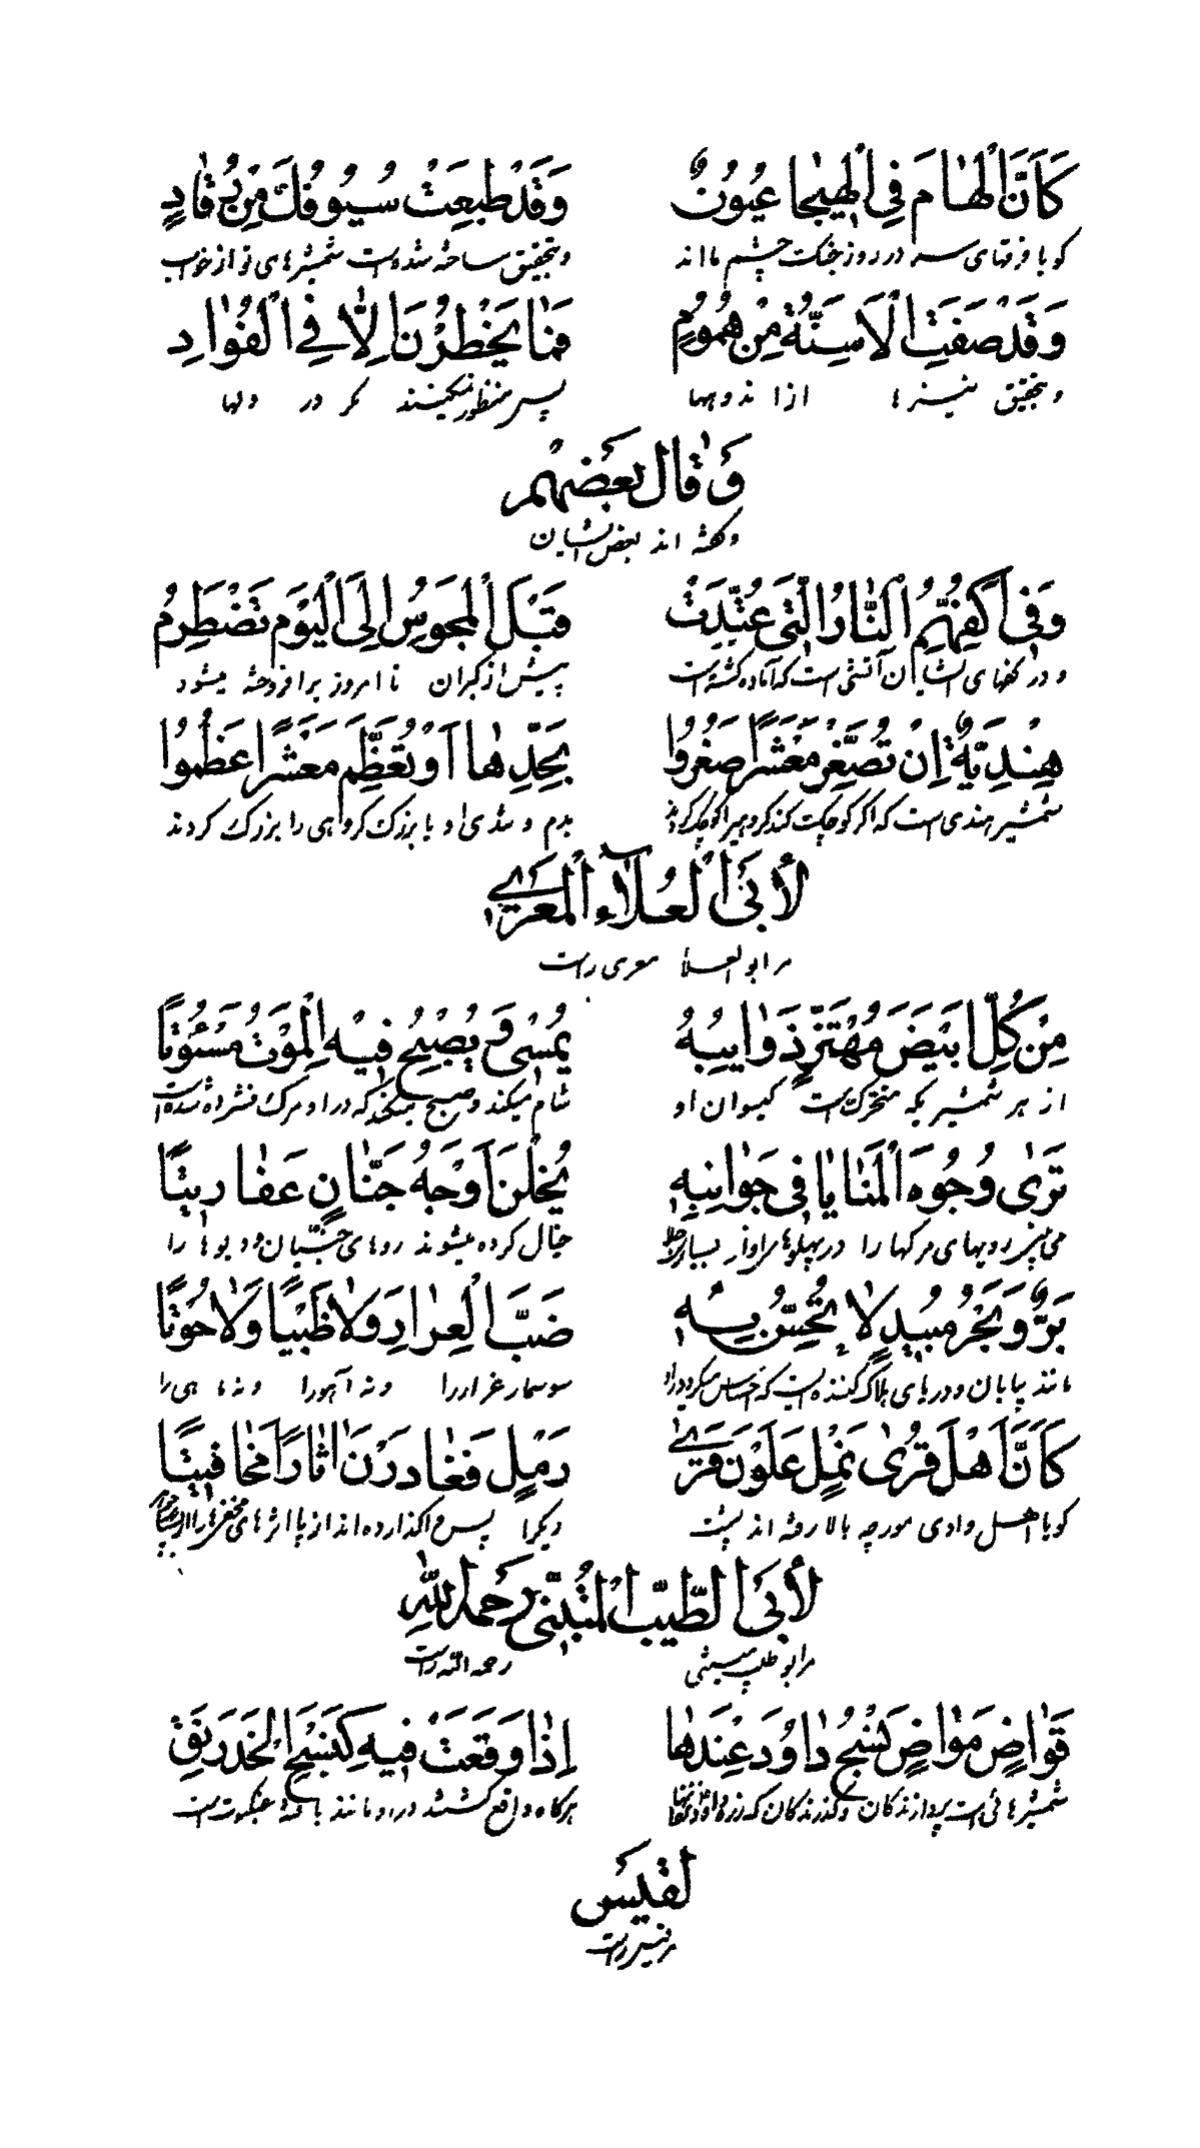 كَأَنَّ الْهٰامَ فِي الْهَيْجٰا عُيُونٌ وَقَدْ طُبِعَتْ سُيُوفُكَ مِنْ رُقٰادٍ
كويا فرقهاى سر در روز جنكت چشمها اند وبتحقيق ساخته شده است شمشيرهاى تو از خواب
وَقَدْ صَفَتِ الْاَسِنَّةُ مِنْ هُمُومٍ فَمٰا يَخْطُرْنَ اِلّٰا فِي الْفُؤٰادِ
وبتحقيق نيزها از اندوهها پس منظور نميكنند مكر در دلها
وَقٰالَ بَعْضُهُمْ
وكفته اند بعض ايشان
وَفِى أَكُفِّهِمُ النّٰارُ الَّتِى عُبِدَتْ قَبْلَ الْمَجُوسِ اِلَى الْيَوْمِ تَضْطَرِمُ
و در كفهاى ايشان آتشى است كه آماده كشته است پيش از كبران تا امروز برافروخته ميشود
هِنْدِيَّةٌ اِنْ تُصَغِّرْ مَعْشَرًا صَغُرُوا بِحَدِّهٰا اَوْ تُعَظِّمْ مَعْشَرًا عَظُمُوا
شمشير هندى است كه اكر كوچكت كند كروهيرا كوچك كردند بدم و تندى او يا بزركت كروهى را بزركت كردند
لِأَبِى الْعَلَآءِ الْمَعَرِّي
مر ابوالعلا معرى راست
مِنْ كُلِّ ابْيَضَ مُهْتَزٍّ ذَوٰايِبُهُ يُمْسِى وَ يُصْبِحُ فِيْهِ الْمَوْتُ مَسْئُوتًا
از هر شمشير يكه متحركست كيسوان او شام ميكند و صبح ميكند كه در او مركت فشرده شده است
تَرٰى وُجُوهَ الْمَنٰايٰا فِى جَوٰانِبِهِ يُخَلْنَ اَوْجَهُ جَنّٰانٍ عَفٰاريتًا
مى بينى رويهاى مركها را در پهلوهاى او از خيال كرده ميشوند روهاى جنّيان و ديوها را
بَرٌّ وَ بَحْرُ مُبيدٍ لٰا تُحِسُّ بِهِ ضَبَّ الْعِرٰارِ وَلٰا ظَبْيًا وَلٰا حُوتًا
مانند بيابان و درياى هلاك كننده است كه سوسمار عرار را و نه آهورا و نه ماهى را
كَأَنَّ اَهْلَ قُرٰى نَمْلٍ عَلَوْنَ قَرٰى رَمْلٍ فَغٰادَرْنَ اٰثٰارًا مَخٰافيتًا
كويا اهل وادى مورچه بالا رفته اند پشت ريكرا پس واكذارده اند از پا اثرهاى
لِأَبِى الطَّيِّب الْمُتَنَبّى رَحِمَهُ اللّٰهِ
مر ابو طيب متنبى رحمه الله راست
قَوٰاضٍ مَوٰاضٍ نَسْجُ دٰاوُدَ عِنْدَهٰا اِذٰا وَقَعَتْ فيهِ كَنَسْجِ الْخَدَرْنَقِ
شمشيرهائى است بردازندكان وكذرندكان كه زره داود نزد آنها هركاه واقع كشتند در او مانند بافته عنكبوت است
لِقَيْسٍ
مر قيس راست